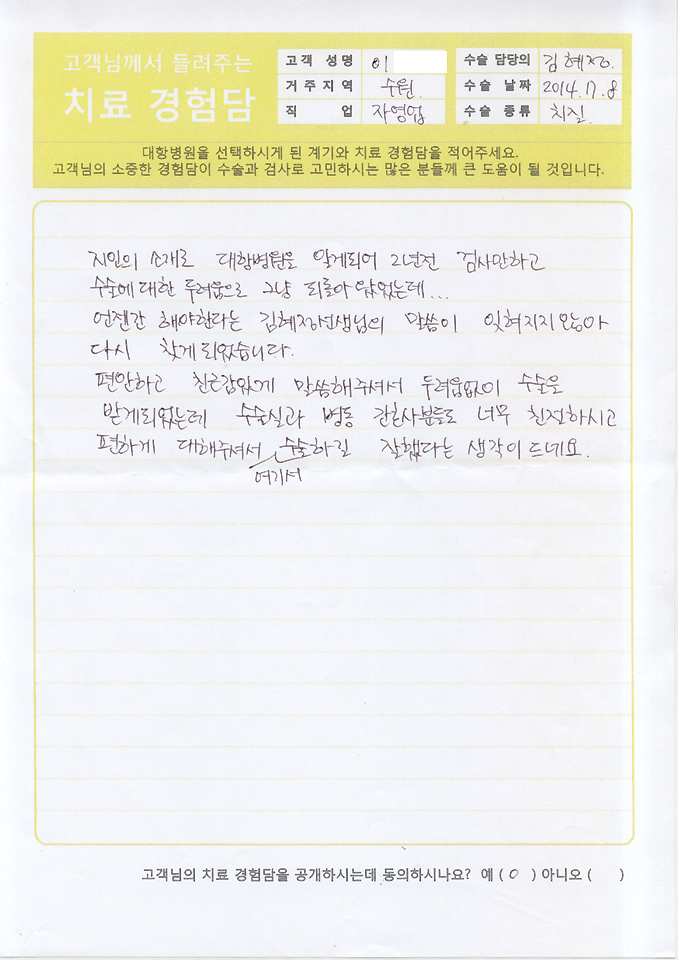 고객님께서 들려주는
치료 경험담
고객 성명 이
거주지역 수원
직 업 자영업
수술 담당의 김혜정
수술 날짜 2014. 7. 8
수술 종류 치질
대항병원을 선택하시게 된 계기와 치료 경험담을 적어주세요.
고객님의 소중한 경험담이 수술과 검사로 고민하시는 많은 분들께 큰 도움이 될 것입니다.
지인의 소개로 대항병원을 알게되어 2년전 검사만하고
수술에 대한 두려움으로 그냥 되돌아 왔었는데...
언젠간 해야한다는 김혜정선생님의 말씀이 잊혀지지 않아
다시 찾게 되었습니다.
편안하고 친근감있게 말씀해주셔서 두려움없이 수술을
받게되었는데 수술실과 병동 간호사분들도 너무 친절하시고
편하게 대해주셔서 수술하길 잘했다는 생각이 드네요.
여기서
고객님의 치료 경험담을 공개하시는데 동의하시나요? 예 ( O ) 아니오 ( )